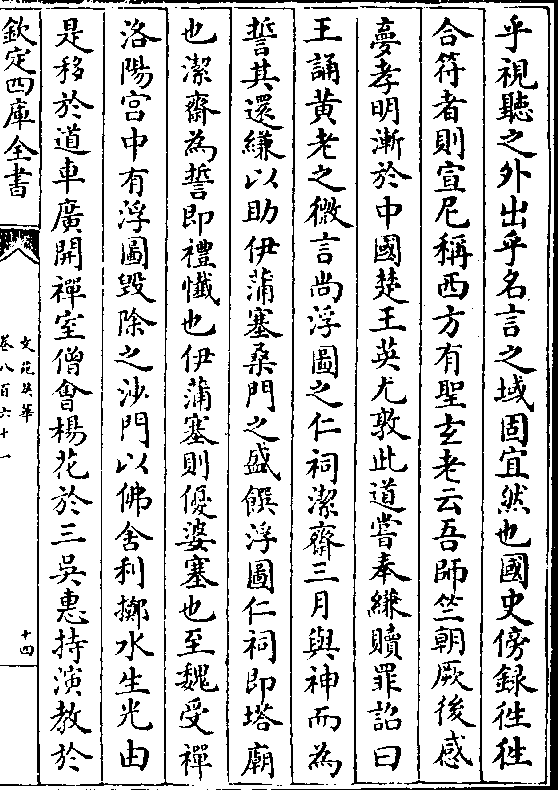 乎視聽之外出乎名言之域固宜然也國史傍録徃徃
合符者則宣尼稱西方有聖玄老云吾師竺朝厥後感
夢孝明漸於中國楚王英尤敦此道嘗奉縑贖罪詔曰
王誦黃老之微言尚浮圖之仁祠潔齋三月與神而為
誓其還縑以助伊蒲塞桑門之盛饌浮圖仁祠即塔廟
也潔齋為誓即禮懺也伊蒲塞則優婆塞也至魏受禪
洛陽宫中有浮圖毀除之沙門以佛舍利擲水生光由
是移於道車廣開禪室僧會楊花於三吳惠持演教於
欽定四庫全書
文苑英華
卷八百六十一
十四